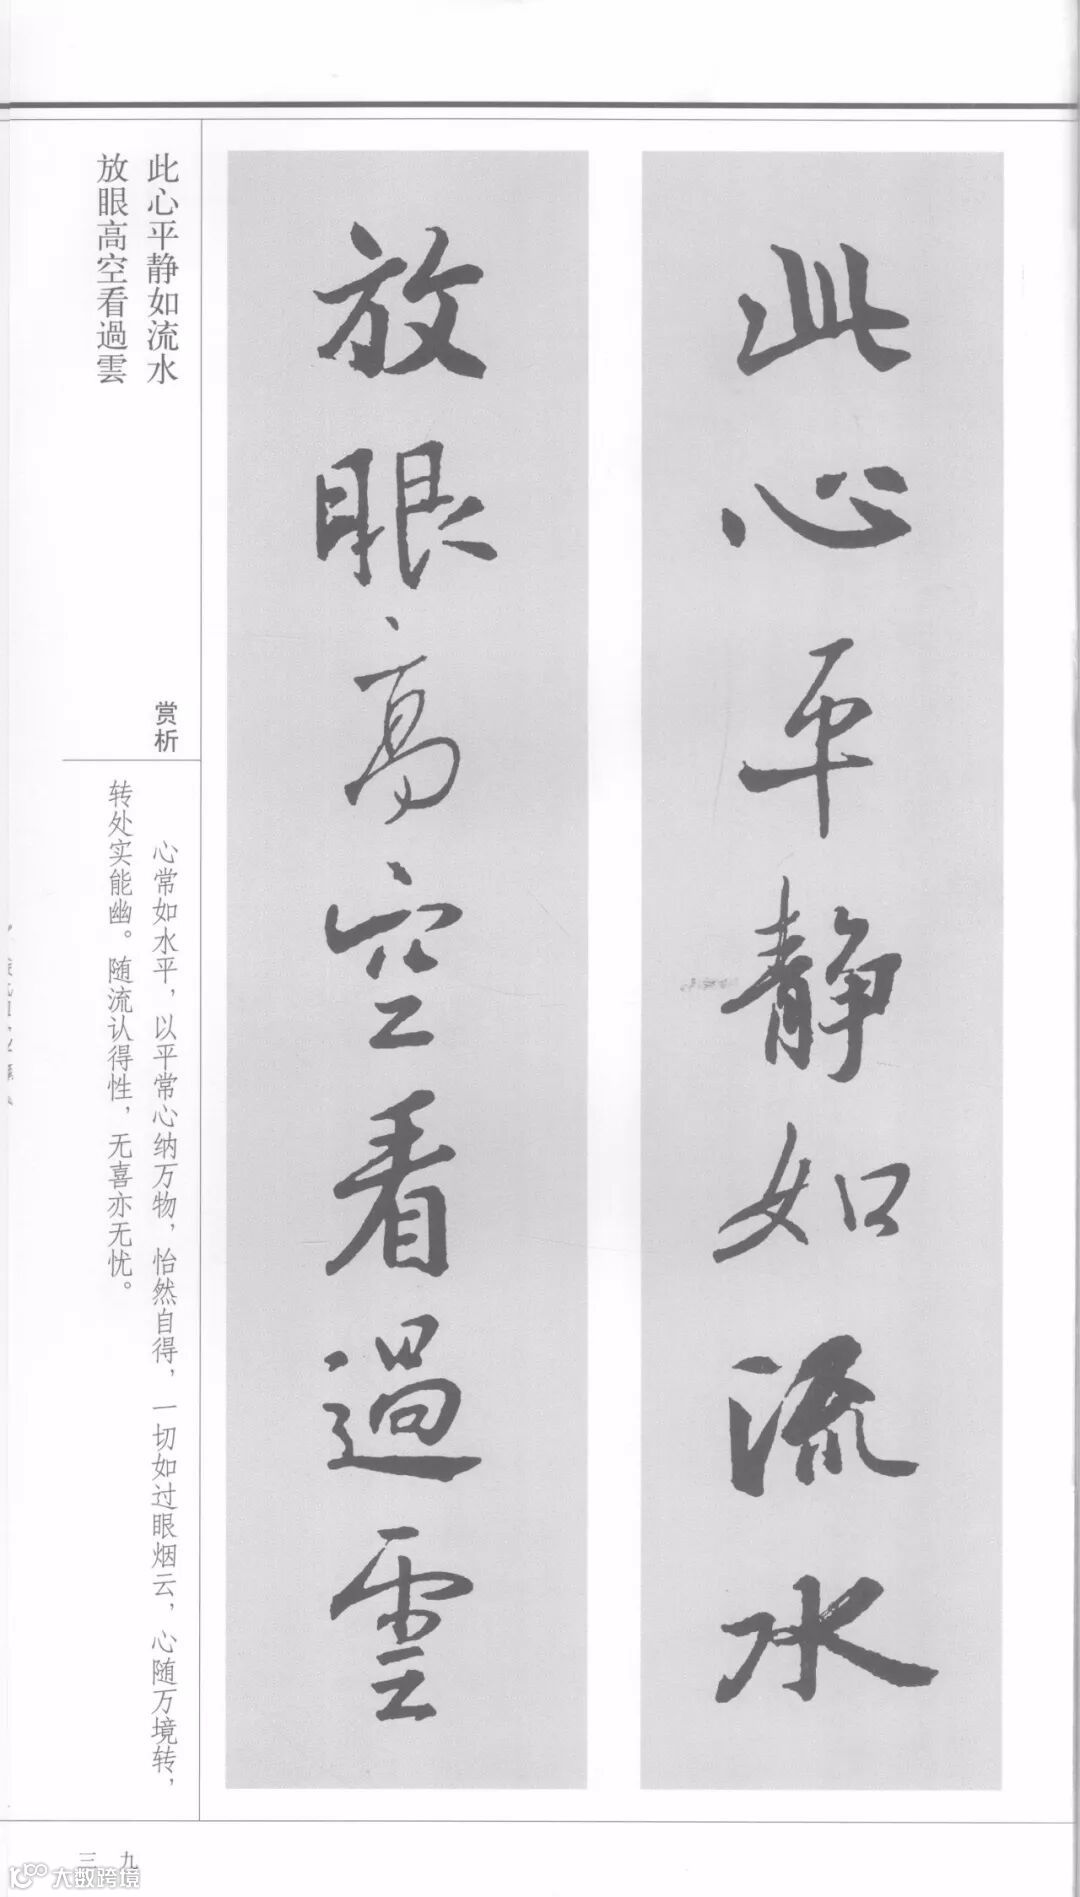 此心平静如流水
放眼高空看過雲
此心平静如流水
放眼高空看過雲
赏析
心常如水平，以平常心纳万物，怡然自得，一切如过眼烟云，心随万境转，
转处实能幽。随流认得性，无喜亦无忧。
三九
大数跨境